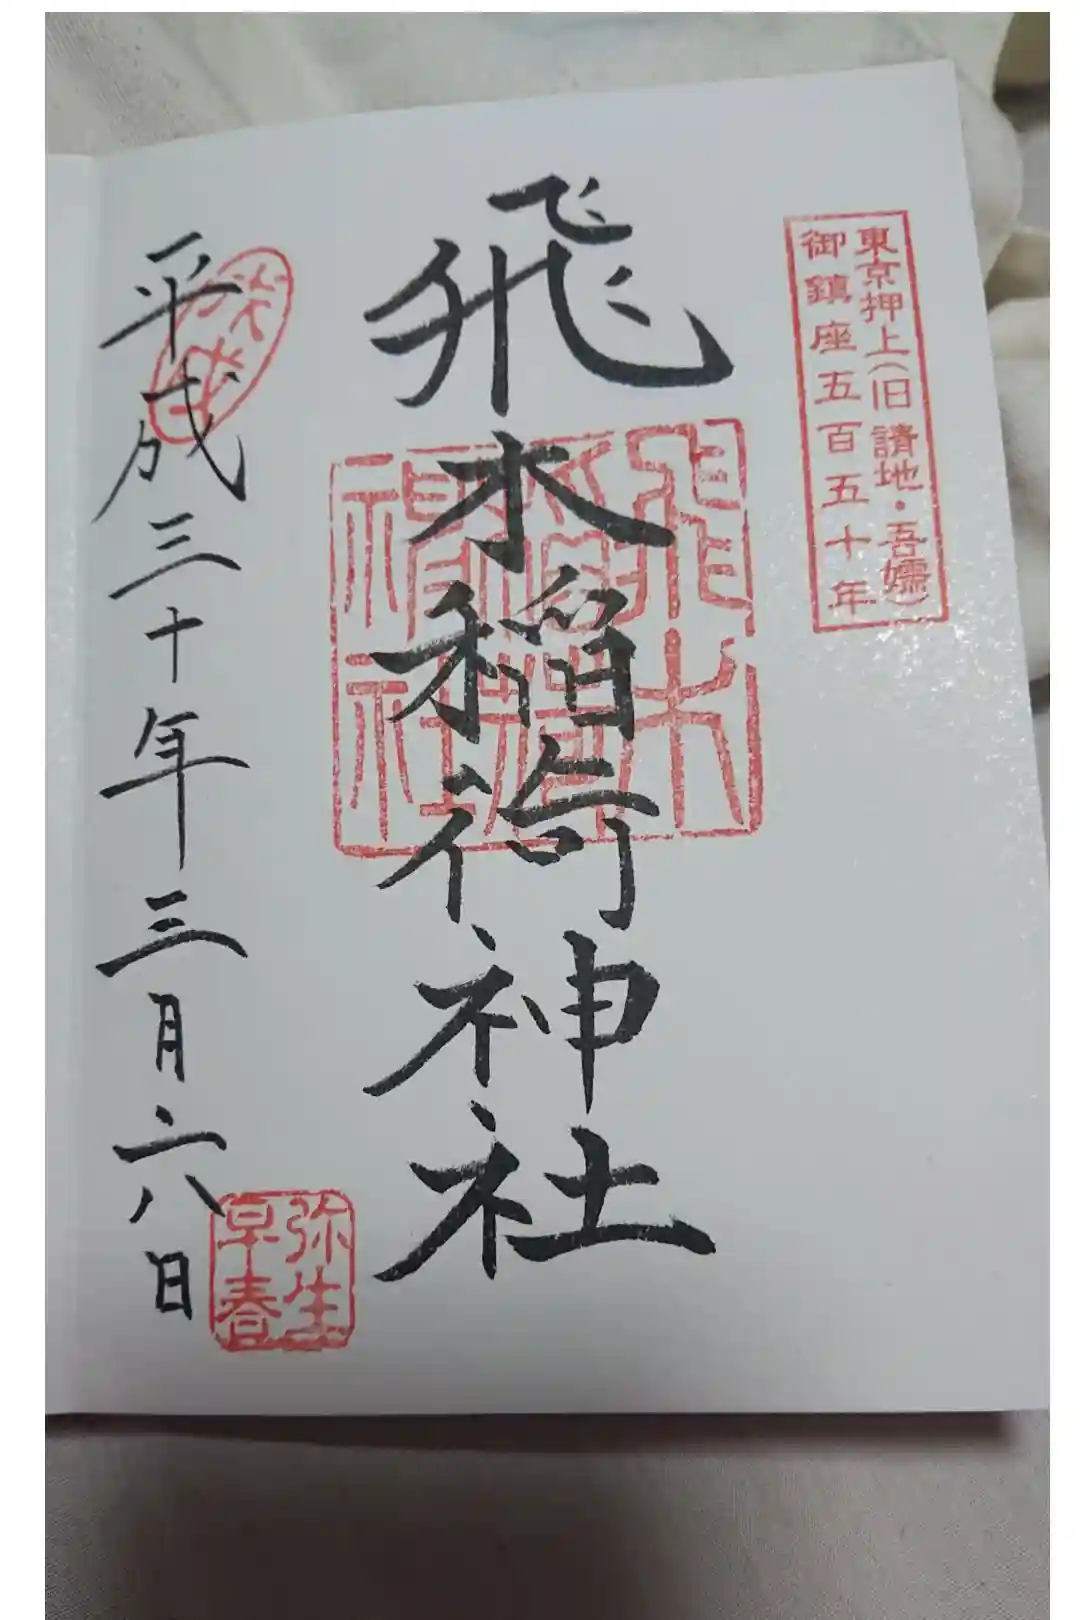 東京押上(旧 請地・吾嬬)
御鎮座五百五十年
飛木稲荷神社
飛木
稲荷
神社
平成三十年三月六日
弥生
早春